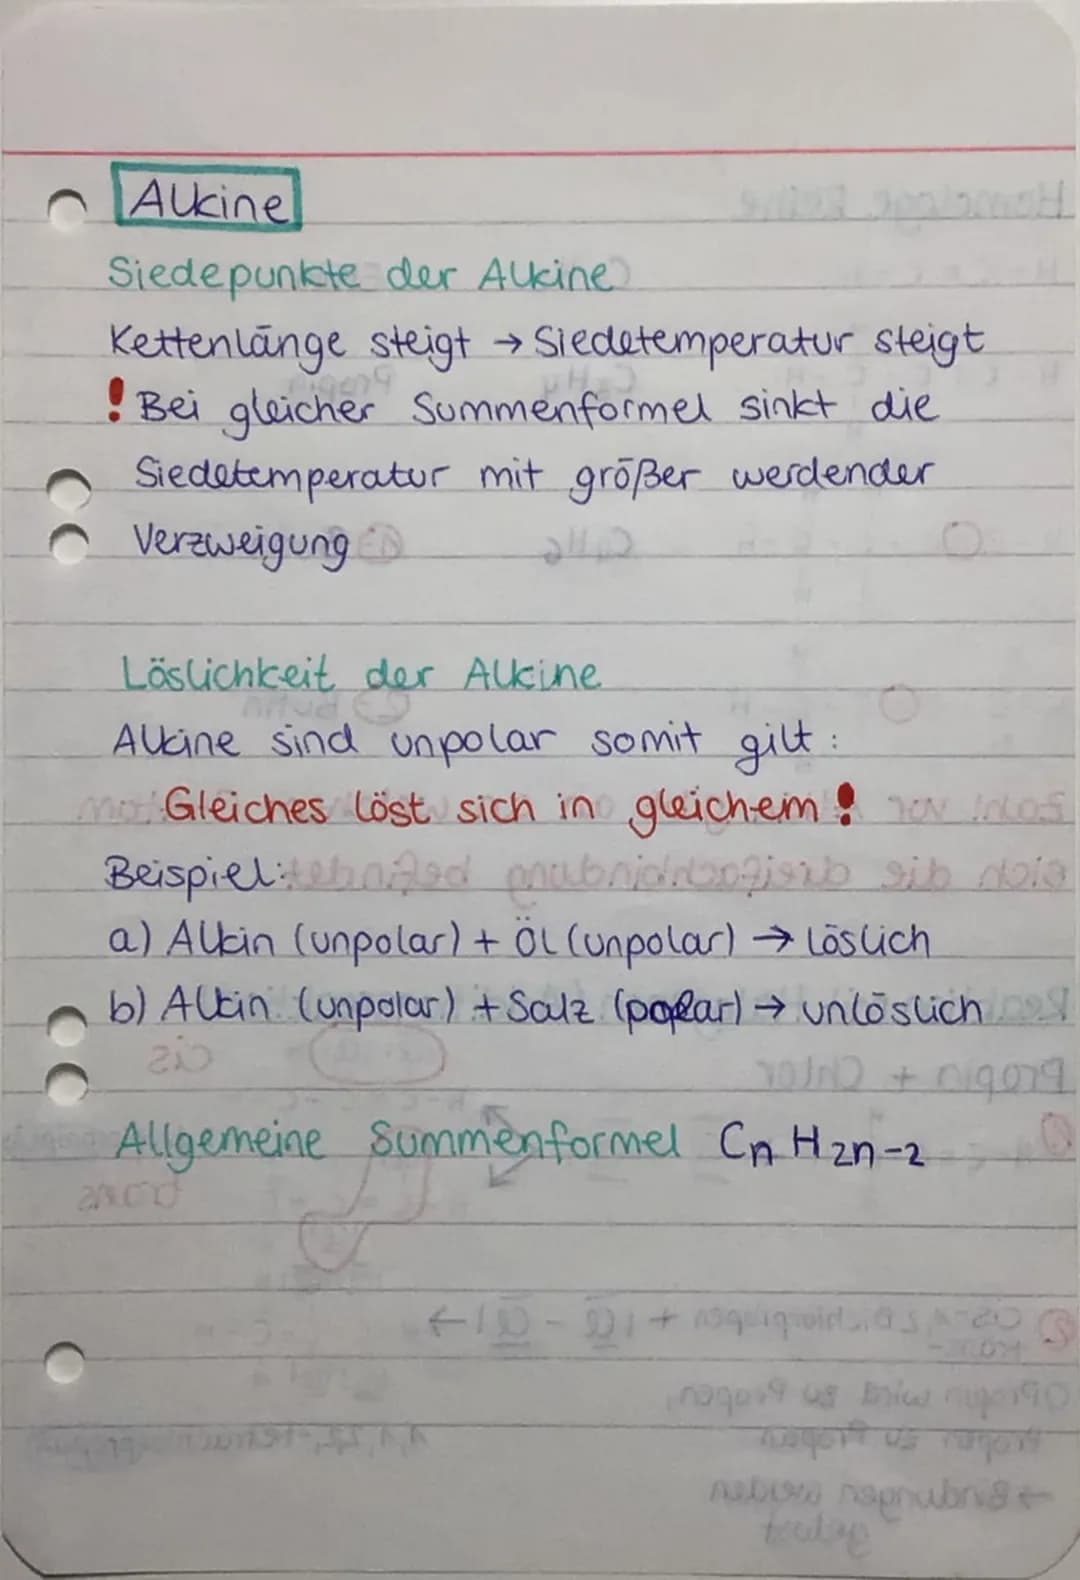 Alkine
Siedepunkte der Alkine
Kettenlänge steigt → Siedetemperatur steigt
! Bei gleicher Summenformel sinkt die
Siedetemperatur mit größer werdender
Verzweigung
Löslichkeit der Alkine
Alkine sind unpolar somit gilt:
Gleiches löst sich in gleichem!
Beispiel:
a) Alkin (unpolar) + Öl (unpolar) → löslich
b) Alkin (unpolar) + Salz (polar) → unlöslich
Allgemeine Summenformel CnH2n-2